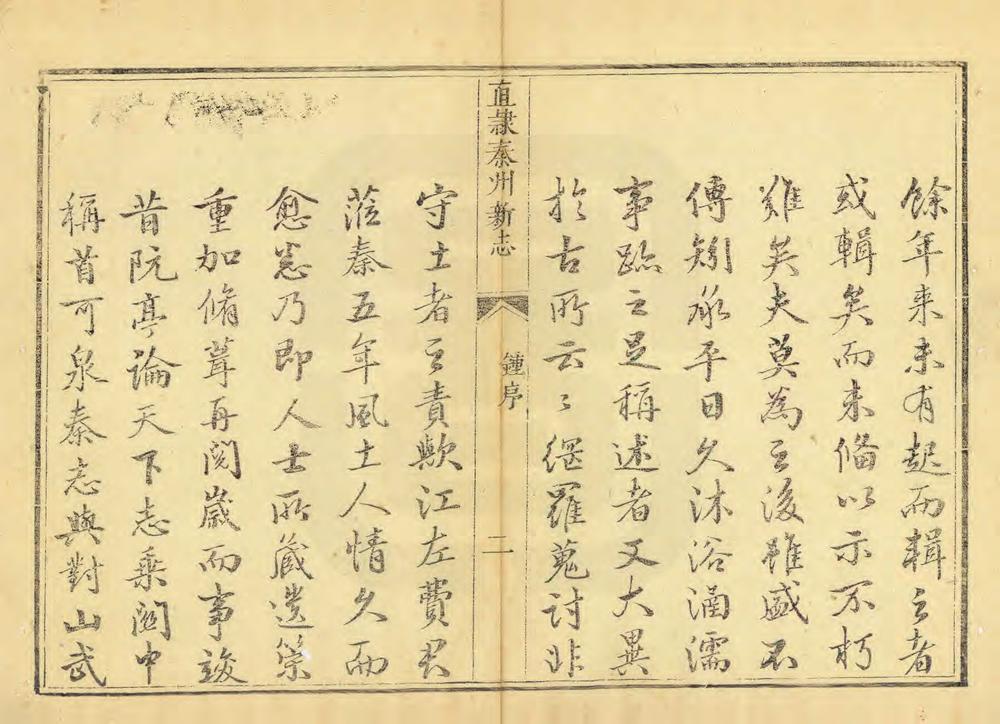 餘年来未有起而輯之者
或輯矣而未偹以示不朽
難矣夫莫為之後雖盛不
傳矧承平日久沐浴涵濡
事跡之足稱述者又大異
於古所云〻網羅蒐討非
直隷秦州新志
鍾序
二
守土者之責歟江左費君
蒞秦五年風土人情久而
愈悉乃即人士所藏遺
重加脩葺再閱歲而事竣
昔阮亭論天下志乗關中
稱首可泉秦志與對山武